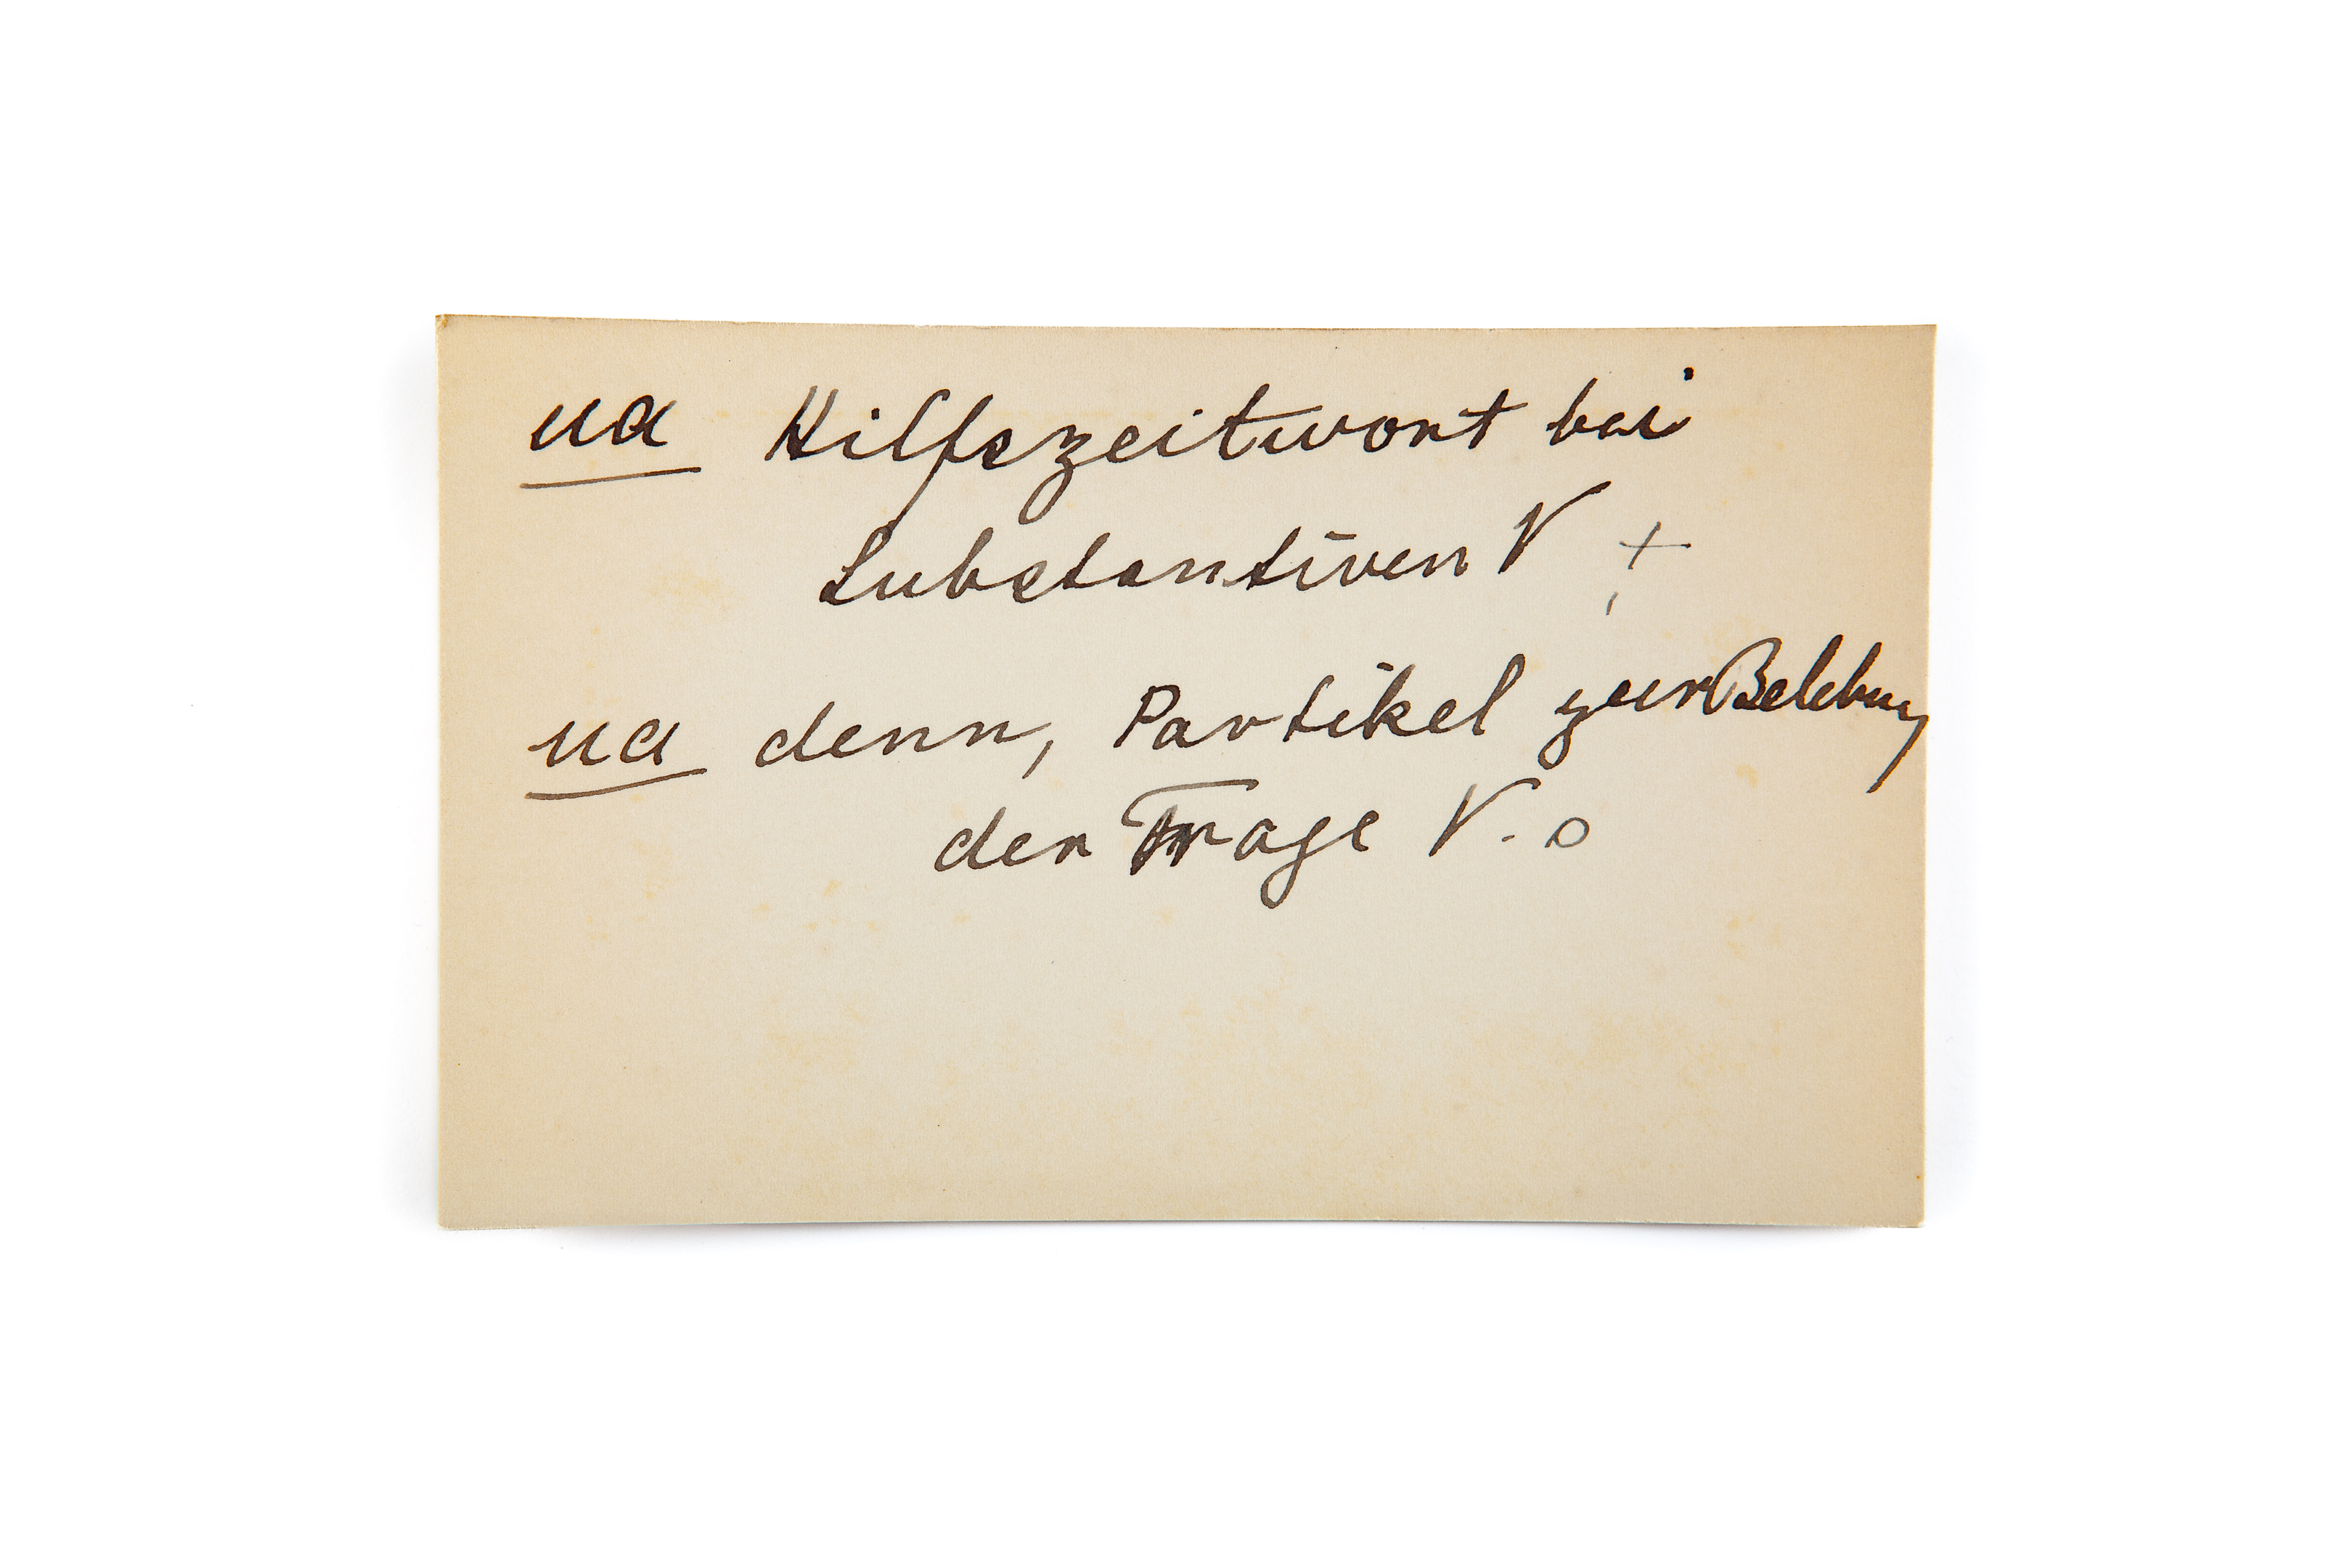 ua Hilfszeitwort bei
Substantiven V +
ua denn, Partikel zur Belebung
der Frage V. o